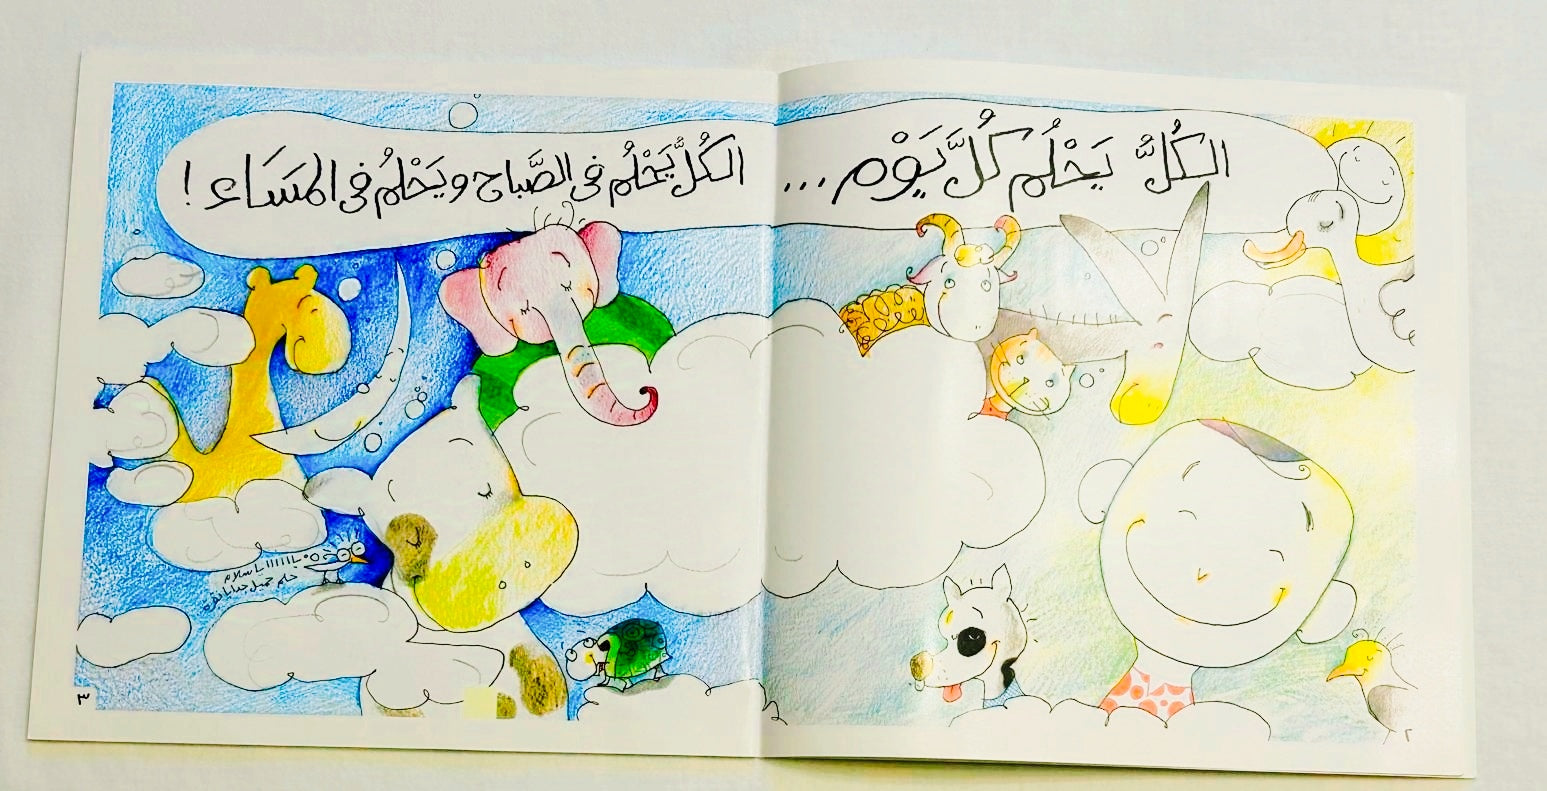 الكُلُّ يَحْلُم كُلَّ يَوْم...
الكُلُّ يَحْلُمُ في الصَّباح ويَحْلُمُ في المَسَاء !
حلم جميل جدا
٣
٢